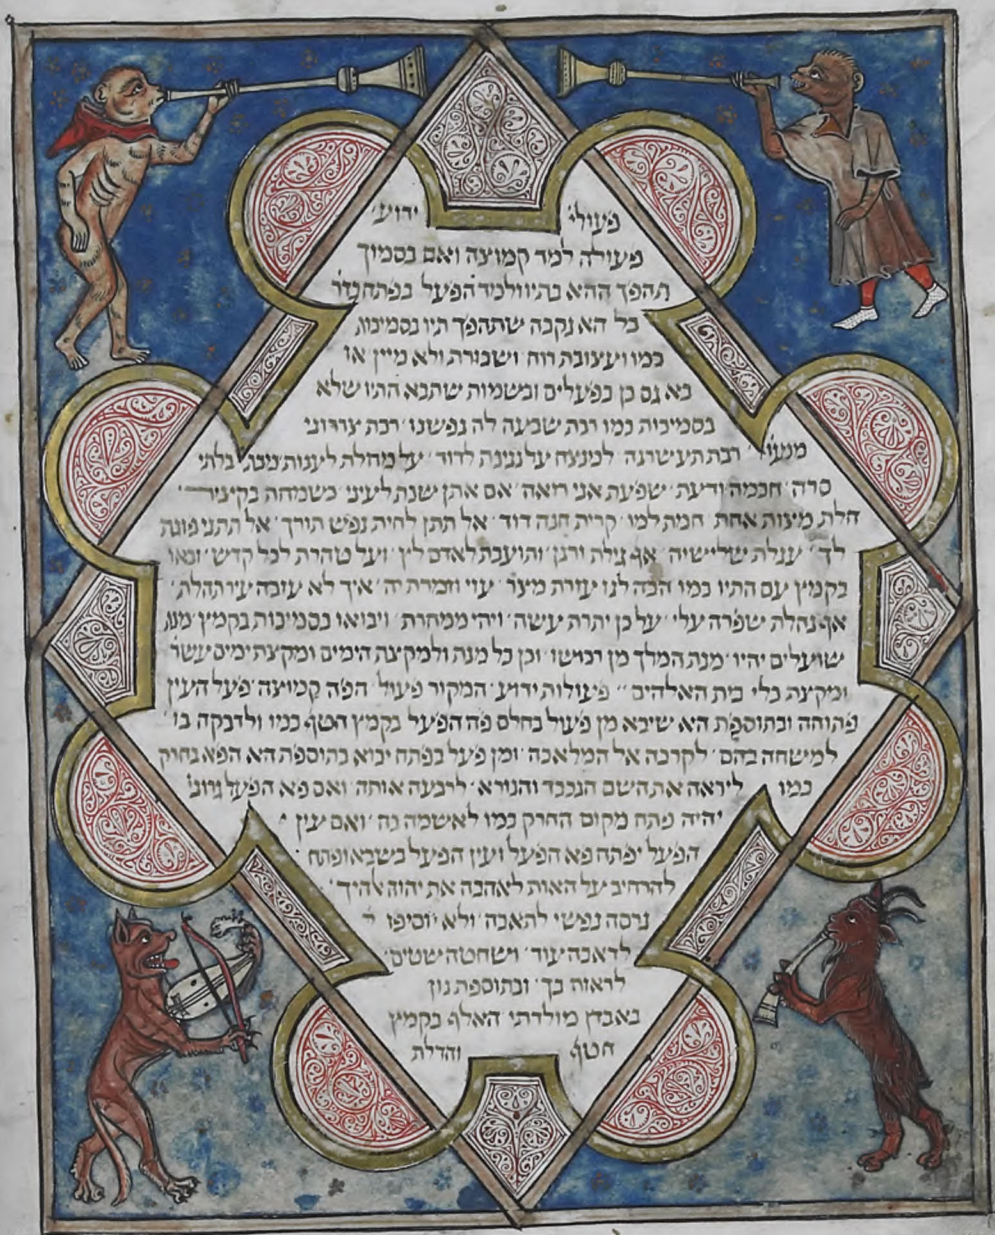 פעולי ידוע
פעולה למד קמוצה ואם בסמוך
תהפך ההא בתיו ולמד הפעל בפתח
כל הא נקבה שתהפך תיו בסמיכות
כמו ועצובת רוח ושכורת ולא מיין או
בא גם כן בפעלים ובשמות שתבא התיו שלא
בסמיכות כמו רבת שבעה לה נפשנו רבת צררוני
רבת תעשרנה למנצח על נגינת לדוד על מחלת לענות בלתי
סרה חכמה ודעת שפעת אני רואה אם אתן שנת לעיני כשמחת בקציר
חלת מצות אחת חמת למו קרית חנה דוד אל תתן לחית נפש תורך אל תתני פוגת
לך עגלת שלישיה אף גילת ורנן ותועבת לאדם לץ ועל טהרת לכל קדש ובאו
בקמץ עם התיו כמו הבה לנו עזרת מצר עזי וזמרת יה איך לא עזבה עיר תהלת
אף נחלת שפרה עלי על כן יתרת עשה ויהי ממחרת ויבואו בסמיכות בקמץ מנת
שועלים יהיו מנת המלך מן רכושו וכן כל מנת ולמקצת הימים ומקצת ימים עשר
ומקצת כלי בית האלהים פעולות ידוע המקור פעול הפה קמוצה פעל העין
פתוחה ובתוספת הא שיבא מן פעול בחלם פה הפעל בקמץ חטף כמו ולדבקה בו
למשחה בהם לקרבה אל המלאכה ומן פעל בפתח יבוא בתוספת הא הפא בחירק
כמו ליראה את השם הנכבד והנורא לרבעה אותה ואם פא הפעל גרונ
יהיה פתח מקום החרק כמו לאשמה בה ואם עין
הפעל יפתח פא הפעל ועין הפעל בשבא ופתח
להרחיב על האות לאהבה את יהוה אלהיך
גרסה נפשי לתאבה ולא יוסיפו
לדאבה עוד ושחטה שטים
לראוה בך ובתוספת נון
באבדן מולדתי האלף בקמץ
חטף והדלת